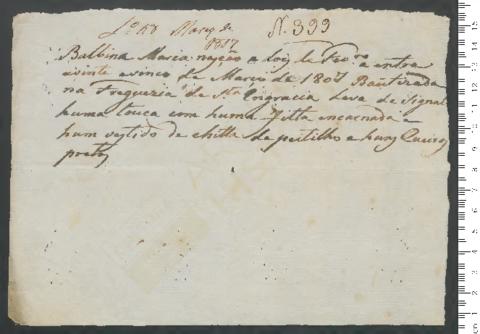 Março de N. 399
1807
Balbina Maria naçeo a doiz de Febro e entrou
a vinte e sinco de Março de 1807 Bautizada
na Freguezia de Sta Engracia Leva de Signal
huma touca com huma fitta encarnada e
hum vestido de chitta de peitilho e huns
pretos